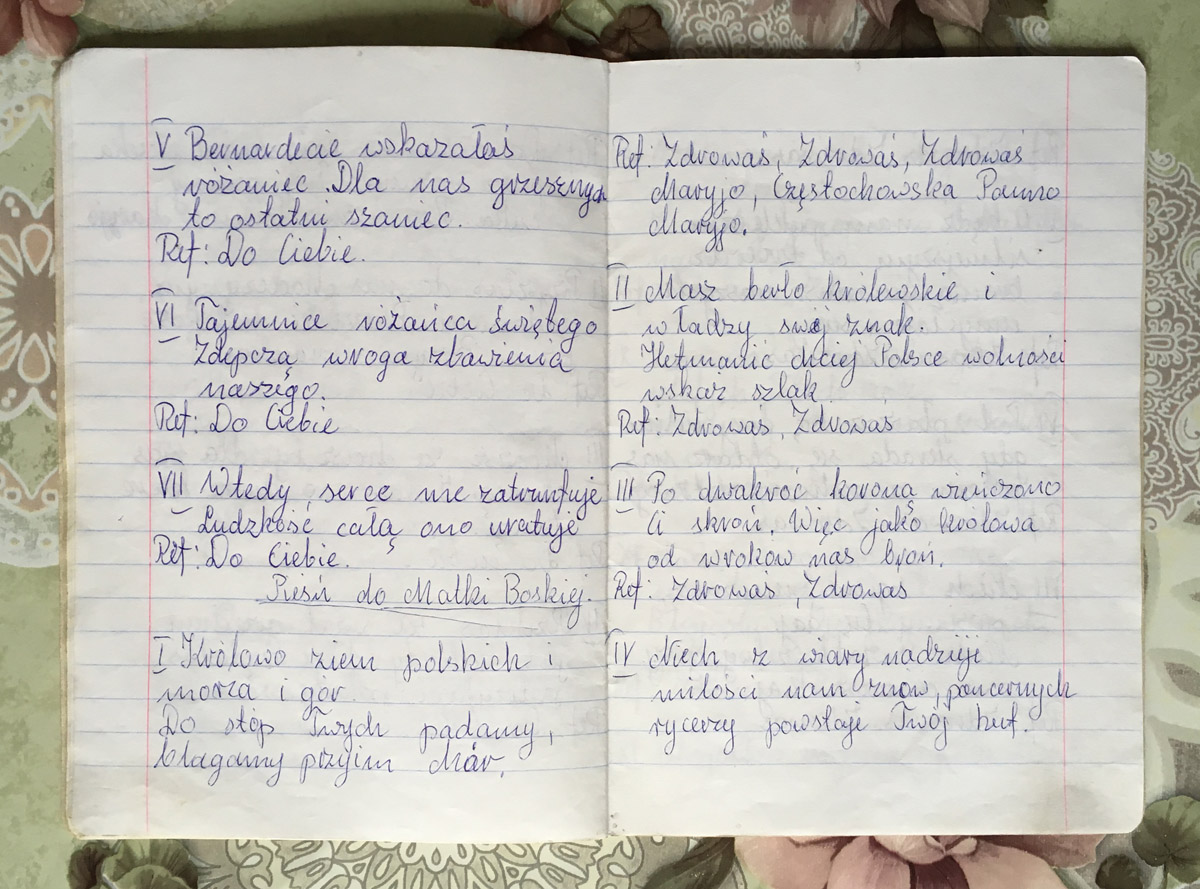 V Bernardecie wskazałaś
różaniec. Dla nas grzesznych
to ostatni szaniec.
Ref: Do Ciebie.
VI Tajemnice różańca świętego
Zdepczą wroga zbawienia
naszego.
Ref: Do Ciebie
VII Wtedy, serce nie zatrumfuje
Ludzkość całą ono uratuje
Ref: Do Ciebie.
Pieśń do Matki Boskiej.
I Królowo ziem polskich i
morza i gór
Do stóp Twych padamy,
błagamy przyjim chór.
Ref: Zdrowaś, Zdrowaś, Zdrowaś
Maryjo, Częstochowska Panno
Maryjo.
II Masz berło królewskie i
władzy swej znak.
Hetmanić chciej Polsce wolności
wskaż szlak.
Ref: Zdrowaś, Zdrowaś
III Po dwakroć koroną wieńczono
Ci skroń, Więc jako królowa
od wroków nas broń.
Ref: Zdrowaś, Zdrowaś
IV Niech z wiary nadzieji
miłości nam znów, pancernych
rycerzy powstaje Twój huf.